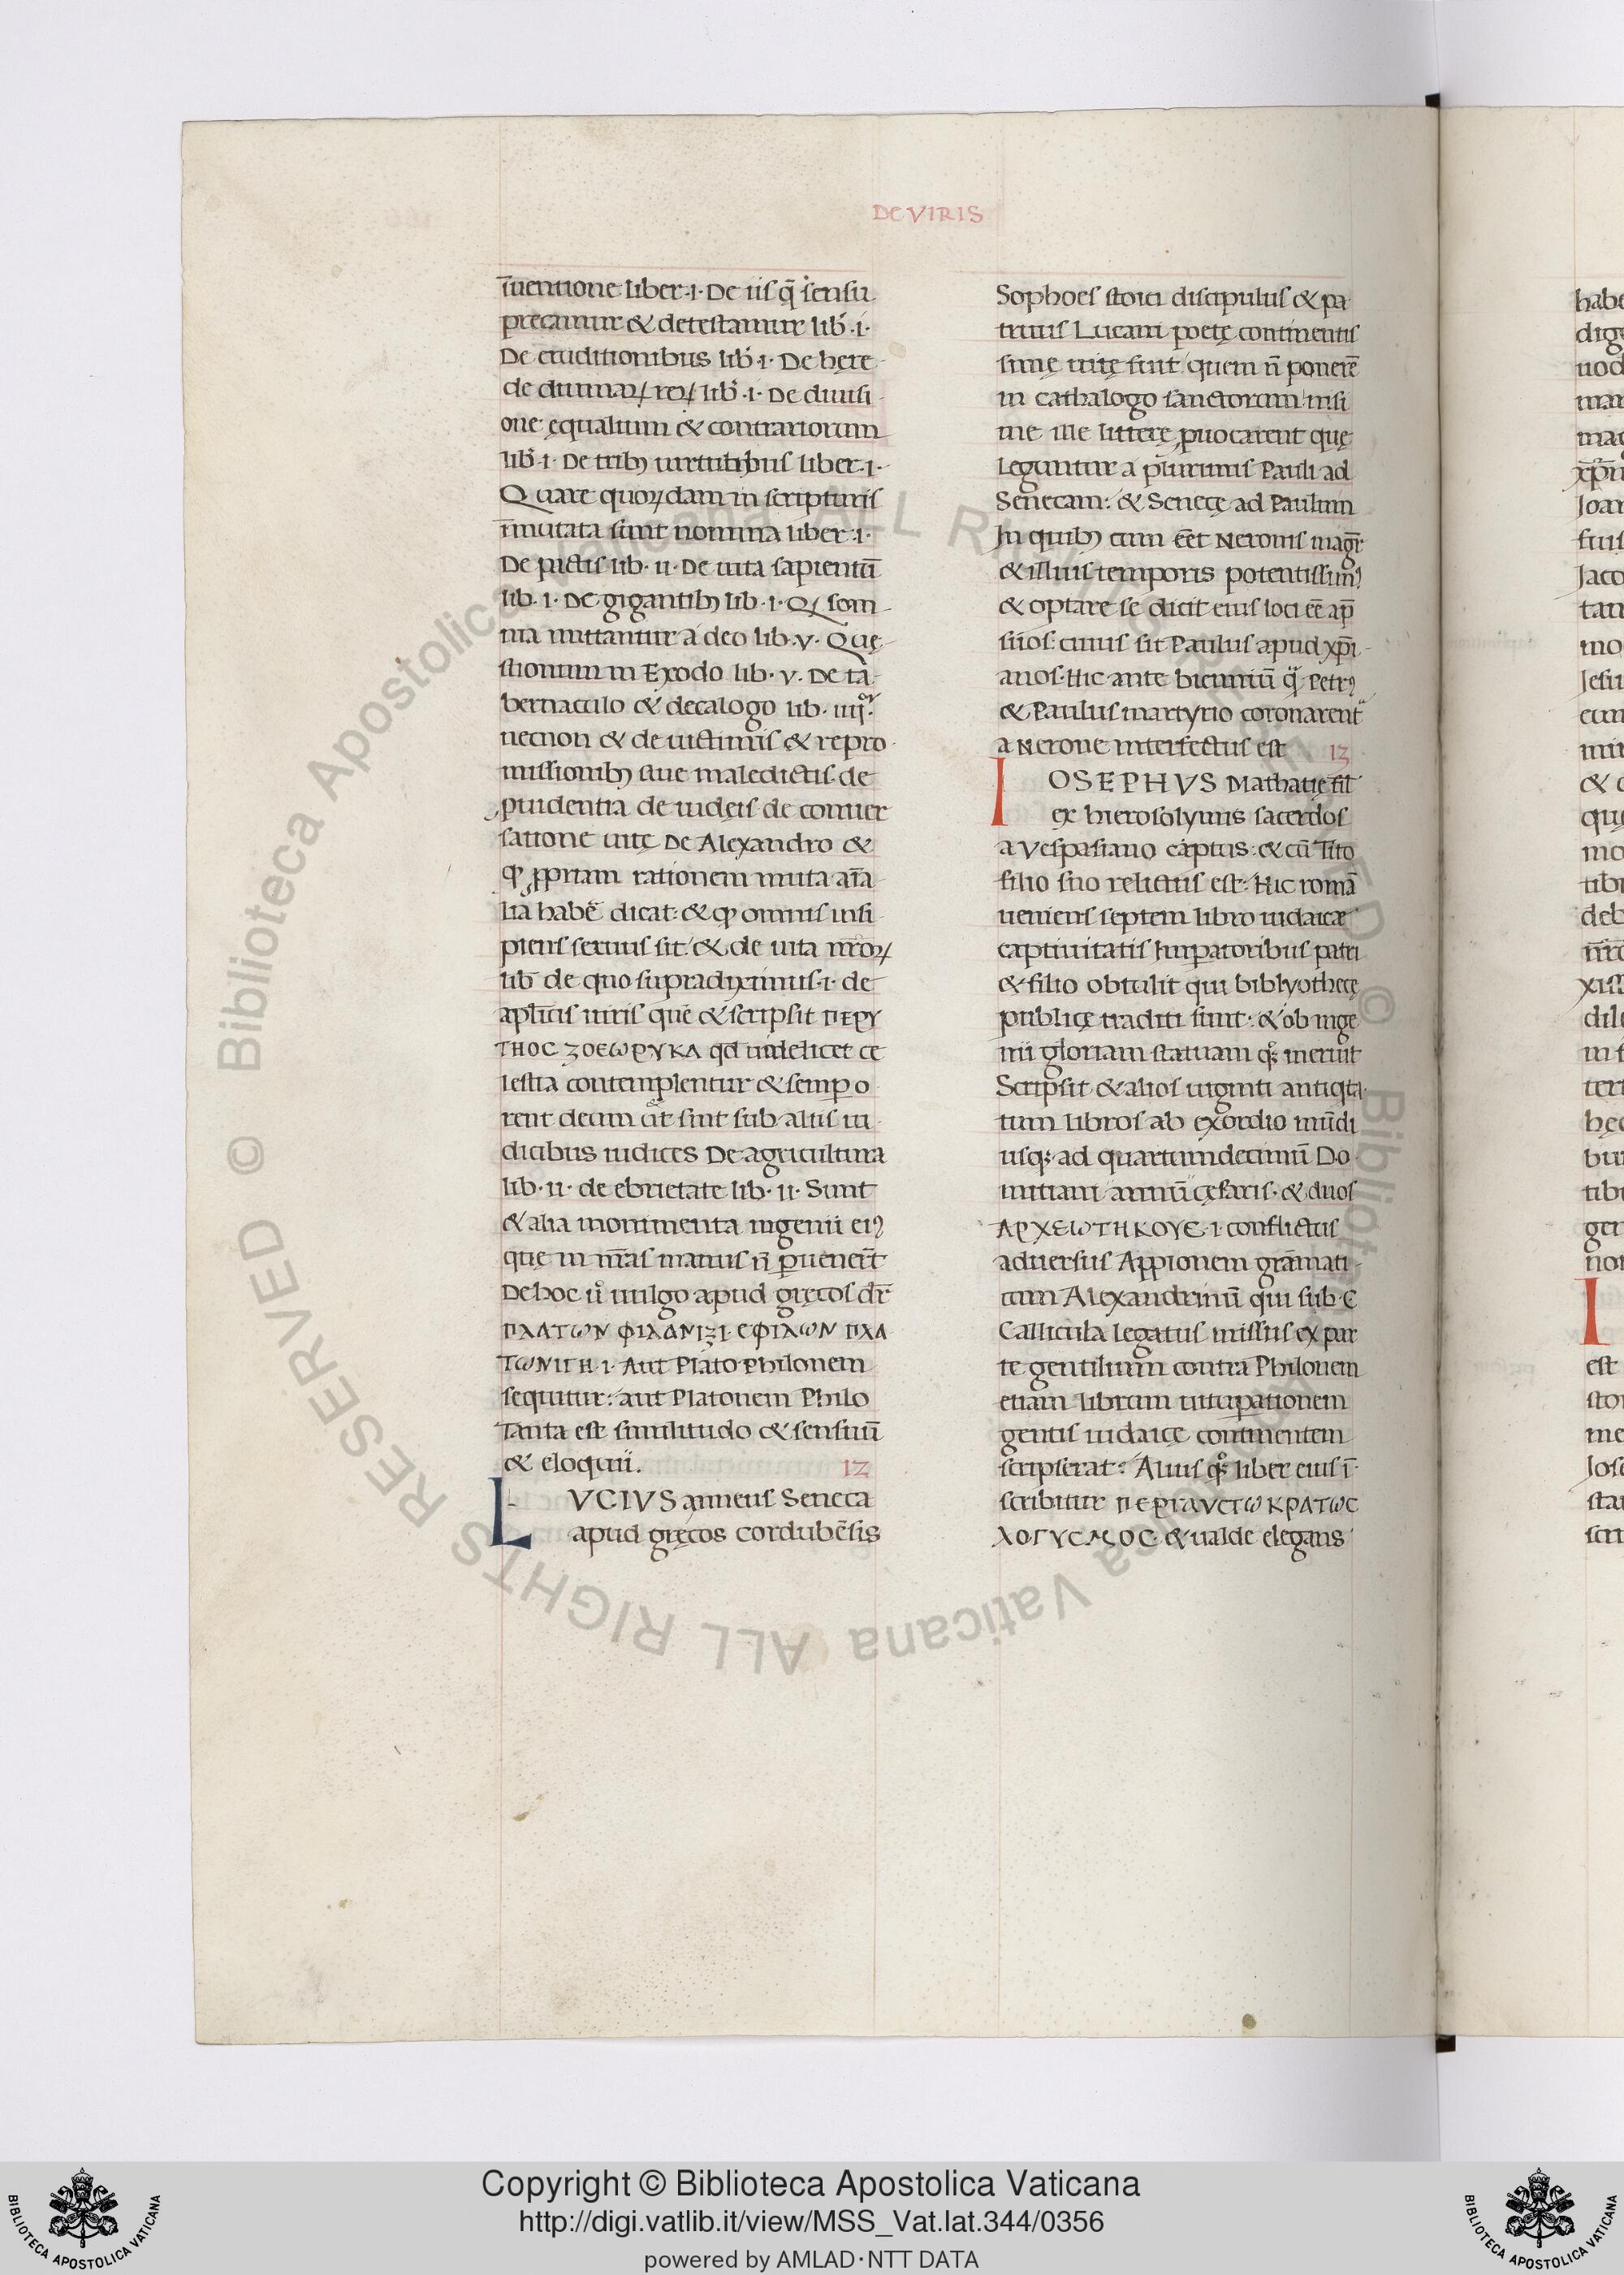 DE VIRIS
īuentione liber·i·De iis q̄ sensu
precamur & detestamur lib̄·i·
De eruditionibus lib̄·i·De herę
de diuinaꝝ reꝝ lib̄·i·De diuisi
one ęqualium & contrariorum
lib̄·i·De tribꝰ uirtutibus liber·i·
Quare quoꝝdam in scripturis
īmutata sunt nomina liber·i·
De pactis lib·ii·De uita sapientū
lib·i·De gigantibꝰ lib·i·Qꝫ som
nia mittantur a deo lib·v·Quę
stionum in Exodo lib·v·De ta
bernaculo & decalogo lib·iiij·
necnon & de uictimis & repro
missionibꝰ siue maledictis·de
ꝓuidentia de iudęis·de conuer
satione uitę De Alexandro &
ꝙ ꝓpriam rationem muta aīa
lia habē dicat·& ꝙ omnis insi
piens seruus sit·& de uita nr̄oꝝ
lib̄ de quo supradiximus·i·de
aplicis uiris quē & scripsit ΠΕΡΥ
ΤΗΟC ΖΟΕΩΡΥΚΑ qd uidelicet cę
lestia contemplentur & semp o
rent deum
sunt sub aliis iu
dicibus iudices De agricultura
lib·ii·de ebrietate lib·ii·Sunt
& alia monimenta ingenii eiꝰ
quę in nr̄as manus n̄ ꝑuenert̄
De hoc u̇ uulgo apud gręcos dr̄
ΠΛΑΤΩΝ ΦΙΛΩΝΙΖΙ·ΕΦΙΛΩΝ ΠΛΑ
ΤΩΝΙΓΗ·i·Aut Plato Philonem
sequitur: aut Platonem Philo
Tanta est similitudo & sensuū
& eloquii.
12
LVCIVS anneus Seneca
apud gręcos cordubēsis
Sophoes stoici discipulus & pa
truus Lucani poetę continentis
simę uitę fuit quem n̄ ponerē
in cathalogo sanctorum nisi
me ille litterę ꝓuocarent quę
leguntur a plurimis Pauli ad
Senecam: & Senecę ad Paulum
In quibꝰ cum eēt Neronis magr̄
& illius temporis potentissimꝰ
& optare se dicit eius loci eē ap̄
suos·cuius sit Paulus apud xp̄i
anos·Hic ante bienniū q̈ Petrꝰ
& Paulus martyrio coronarent
a Nerone interfectus est
13
IOSEPHVS Mathatię fil
ex hierosolymis sacerdos
a Vespasiano captus: & cū Tito
filio suo relictus est·Hic romā
ueniens septem libro iudaicæ
captiuitatis Imꝑatoribus patri
& filio obtulit qui biblyothecę
publicę traditi sunt: & ob inge
nii gloriam statuam qꝫ meruit
Scripsit & alios uiginti antiqta
tum libros ab exordio mūdi
usqꝫ ad quartumdecimū Do
mitiani annū cęsaris·& duos
ΑΡΧΕΩΤΗΚΟΥΕ·i·conflictus
aduersus Appionem grāmati
cum Alexandrinū qui sub C
Callicula legatus missus ex par
te gentilium contra Philonem
etiam librum uituꝑationem
gentis iudaicę continentem
scripserat: Alius qꝫ liber eius ī
scribitur ΠΕΡΙΑΥCΤΩΚΡΑΤΩC
ΛΟΓΥCΜΟC·& ualde elegans
habe
est
Copyright © Biblioteca Apostolica Vaticana
http://digi.vatlib.it/view/MSS_Vat.lat.344/0356
powered by AMLAD·NTT DATA
BIBLIOTECA APOSTOLICA VATICANA
BIBLIOTECA APOSTOLICA VATICANA
© Biblioteca Apostolica Vaticana ALL RIGHTS RESERVED © Biblioteca Apostolica Vaticana ALL RIGHTS RESERVED